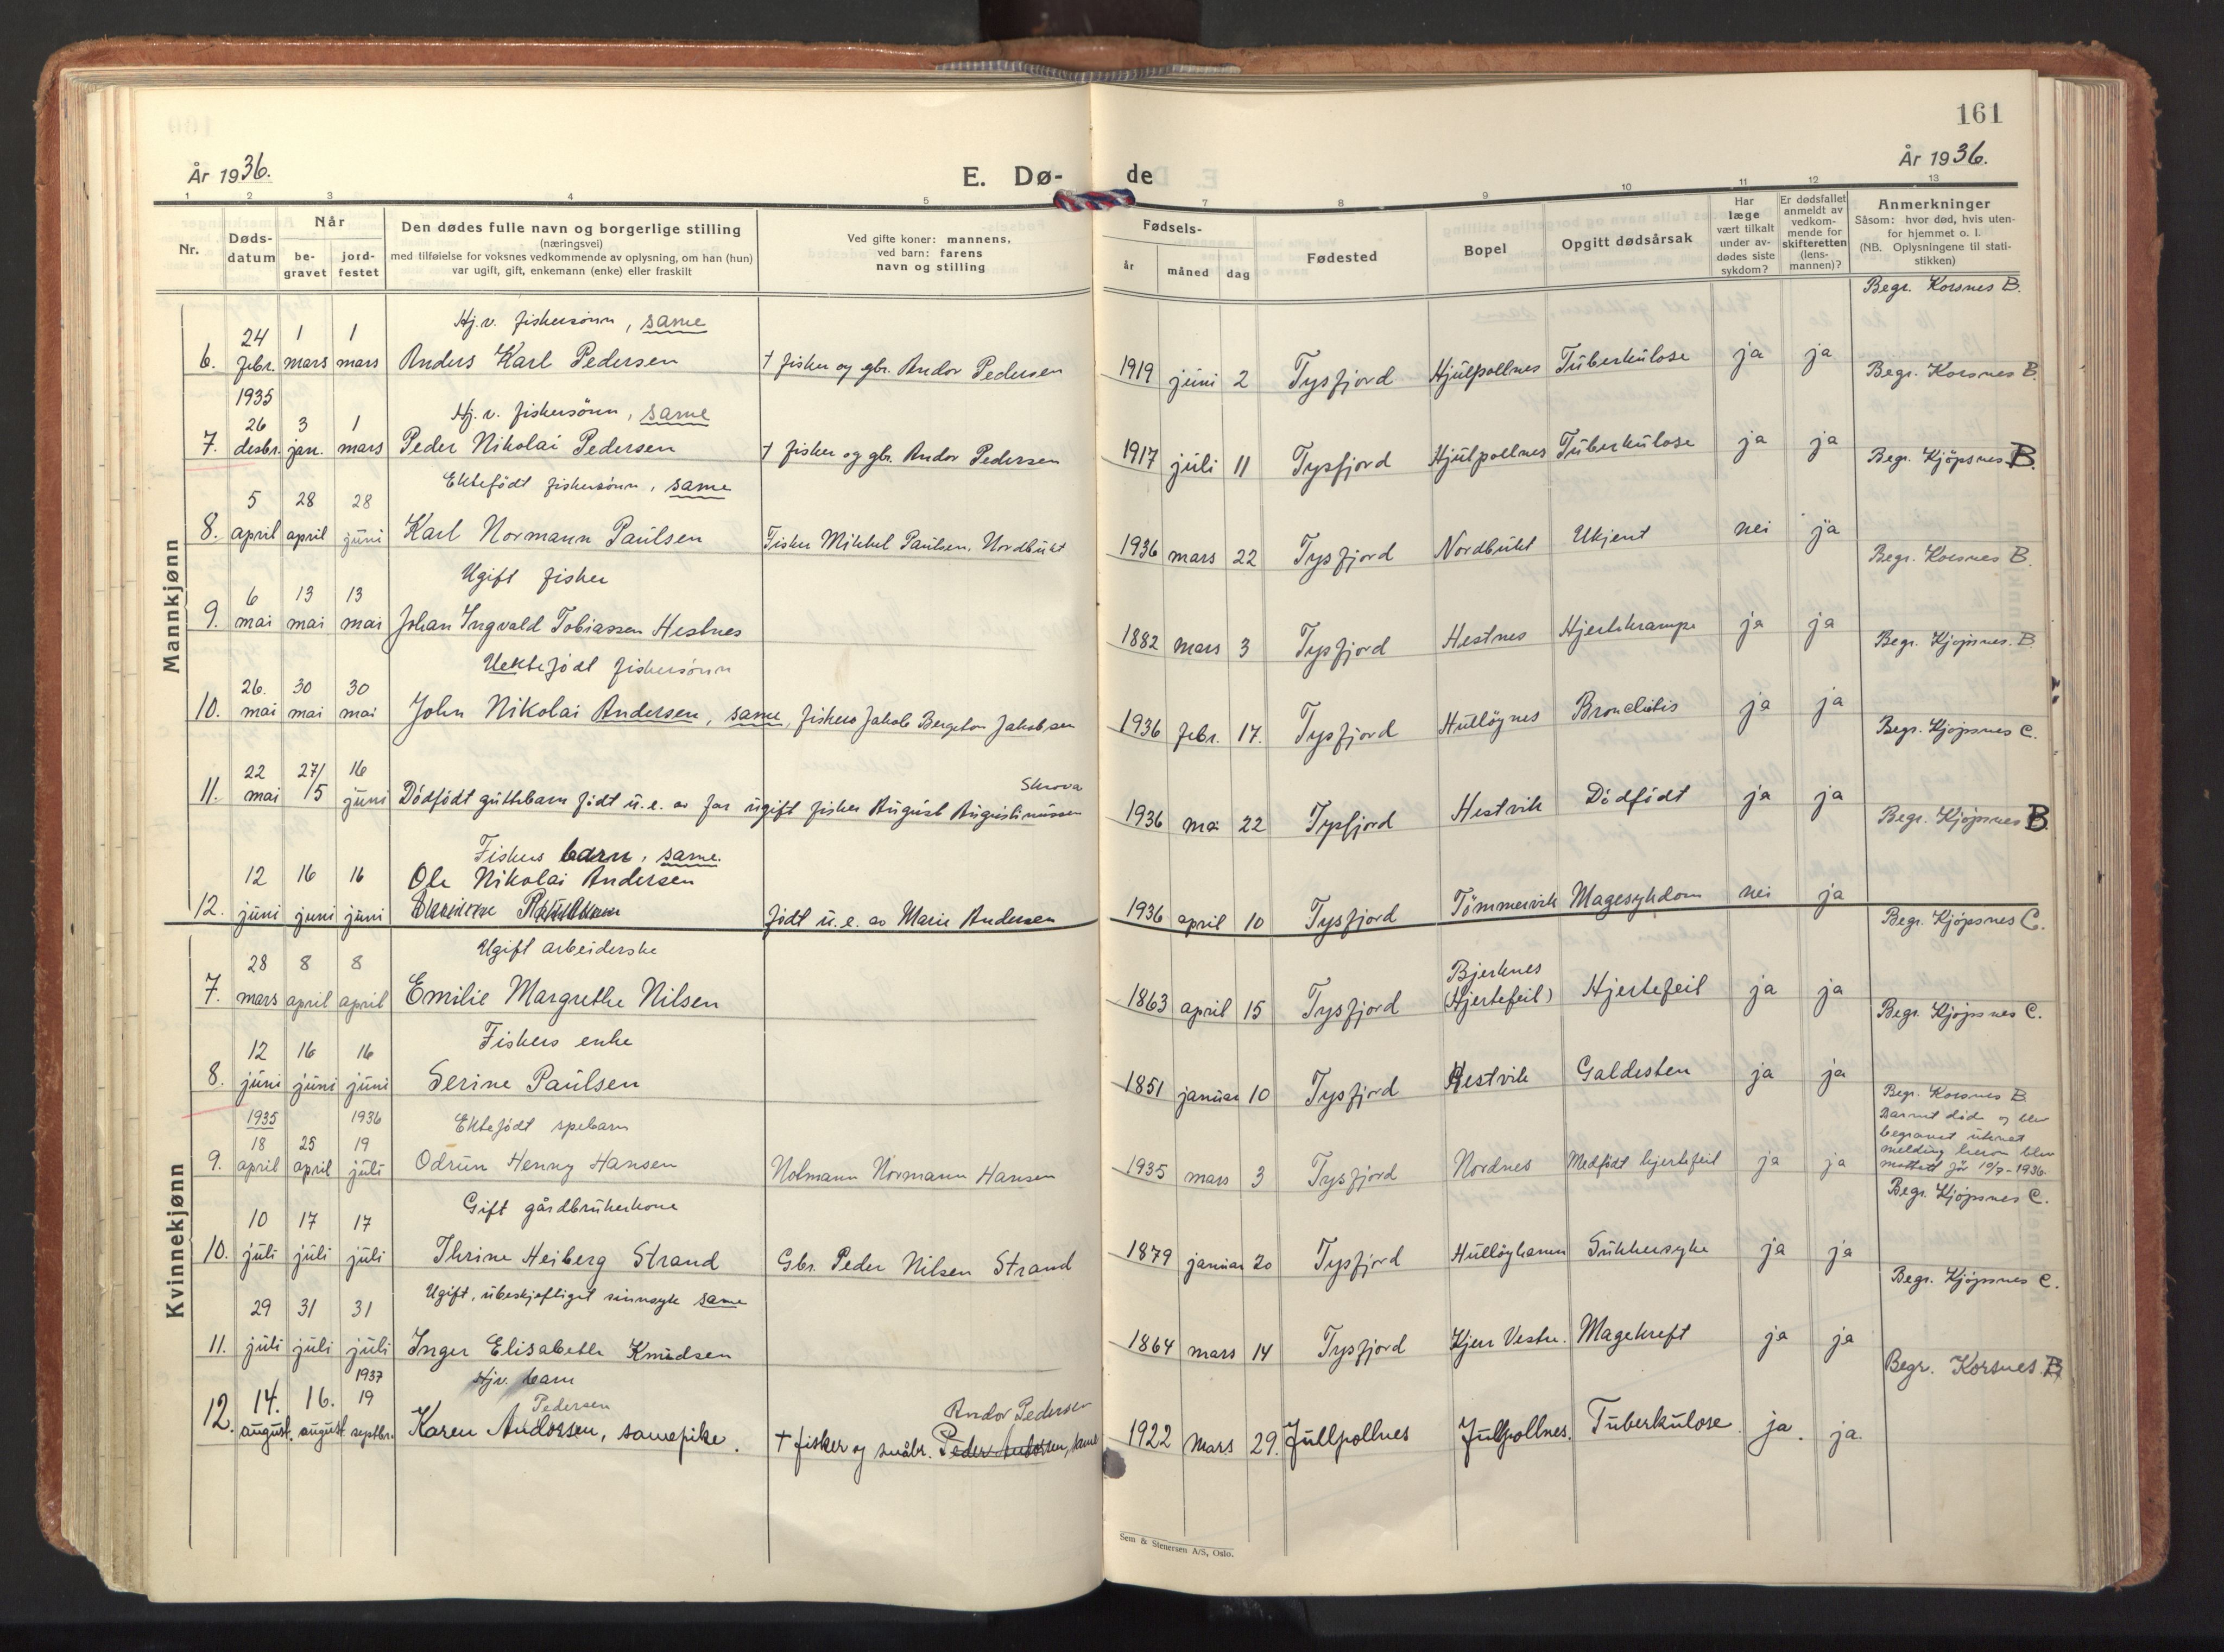 161
År 1936.
E. Dø-
de
År 1936.
1 2 3 4 5 7 8 9 10 11 12 13
Nr.
Døds-
datum
Når
be-
gravet
jord-
festet
Den dødes fulle navn og borgerlige stilling
(næringsvei)
med tilføielse for voksnes vedkommende av oplysning, om han (hun)
var ugift, gift, enkemann (enke) eller fraskilt
Ved gifte koner: mannens,
ved barn: farens
navn og stilling
Fødsels-
år
måned
dag
Fødested
Bopel
Opgitt dødsårsak
Har
læge
vært tilkalt
under av-
dødes siste
sykdom?
Er dødsfallet
anmeldt av
vedkom-
mende for
skifteretten
(lens-
mannen)?
Anmerkninger
Såsom: hvor død, hvis uten-
for hjemmet o. l.
(NB. Oplysningene til stati-
stikken)
Mannkjønn
Hj. v. fiskersönn, same
Begr. Korsnes B.
24 1 1
6. febr. mars mars Anders Karl Pedersen † fisker og gbr. Andor Pedersen 1919 juni 2 Tysfjord Hjulpollnes Tuberkulose ja ja
1935
Hj. v. fiskersönn, same
Begr. Korsnes B.
26 3 1
7. desbr. jan. mars Peder Nikolai Pedersen † fisker og gbr. Andor Pedersen 1917 juli 11 Tysfjord Hjulpollnes Tuberkulose ja ja
Ektefödt fiskersönn, same
Begr. Kjöpsnes B.
5 28 28
8. april april juni Karl Normann Paulsen Fisker Mikkel Paulsen, Nordbukt 1936 mars 22 Tysfjord Nordbukt Ukjent nei ja
Ugift fisker
Begr. Korsnes B.
6 13 13
9. mai mai mai Johan Ingvald Tobiassen Hestnes 1882 mars 3 Tysfjord Hestnes Hjertekrampe ja ja
Uektefödt fiskersönn
Begr. Kjöpsnes. B
26. 30 30
10. mai mai mai John Nikolai Andersen, same, fiskers Jakob Bergeton Jakobsen 1936 febr. 17. Tysfjord Hullöynes Bronchitis ja ja
Begr. Kjöpsnes C.
22 27/5 16
Skrova
11. mai juni Dödfödt guttebarn födt u. e. av far ugift fisker August Augustinussen 1936 mai 22 Tysfjord Hestvik Dödfödt ja ja
Begr. Kjöpsnes B.
Fiskers barn, same.
12 16 16 Ole Nikolai Andersen
12. juni juni juni födt u. e. av Marie Andersen 1936 april 10 Tysfjord Tömmervik Magesykdom nei ja
Kvinnekjønn
Ugift arbeiderske
Begr. Kjöpsnes C.
28 8 8 Bjerknes
7. mars april april Emilie Margrethe Nilsen 1863 april 15 Tysfjord (Hjertefeil) Hjertefeil ja ja
Fiskers enke
Begr. Kjöpsnes C.
12 16 16
8. juni juni juni Serine Paulsen 1851 januar 10 Tysfjord Hestvik Galdesten ja ja
1935 1936
Ektefödt spebarn
Begr. Korsnes B
Barnet döde og blev
begravet
melding herom blev
mottatt för 10/7-1936.
18 25 19
9. april april juli Odrun Henny Hansen Notmann Normann Hansen 1935 mars 3 Tysfjord Nordnes Medfödt hjertefeil ja ja
Gift gårdbrukerkone
Begr. Kjöpsnes C.
10 17 17
10. juli juli juli Thrine Heiberg Strand Gbr. Peder Nilsen Strand 1879 januar 20 Tysfjord Hullöyhamn Sukkersyke ja ja
Ugift, ubeskjeftiget sinnsyk same
Begr. Kjöpsnes C.
29 31 31
11. juli juli juli Inger Elisabeth Knudsen 1864 mars 14 Tysfjord Kjerr Vestre. Magekreft ja ja
1937
Hjv. barn
Begr. Korsnes. B
14. 16. 19 Pedersen Andor Pedersen
12. august. august septbr. Karen Andorsen, samepike. † fisker og småbr. Peder Andersen, same 1922 Mars 29. Jullpollnes Julpollnes. Tuberkulose ja. ja.
Sem & Stenersen A/S, Oslo.